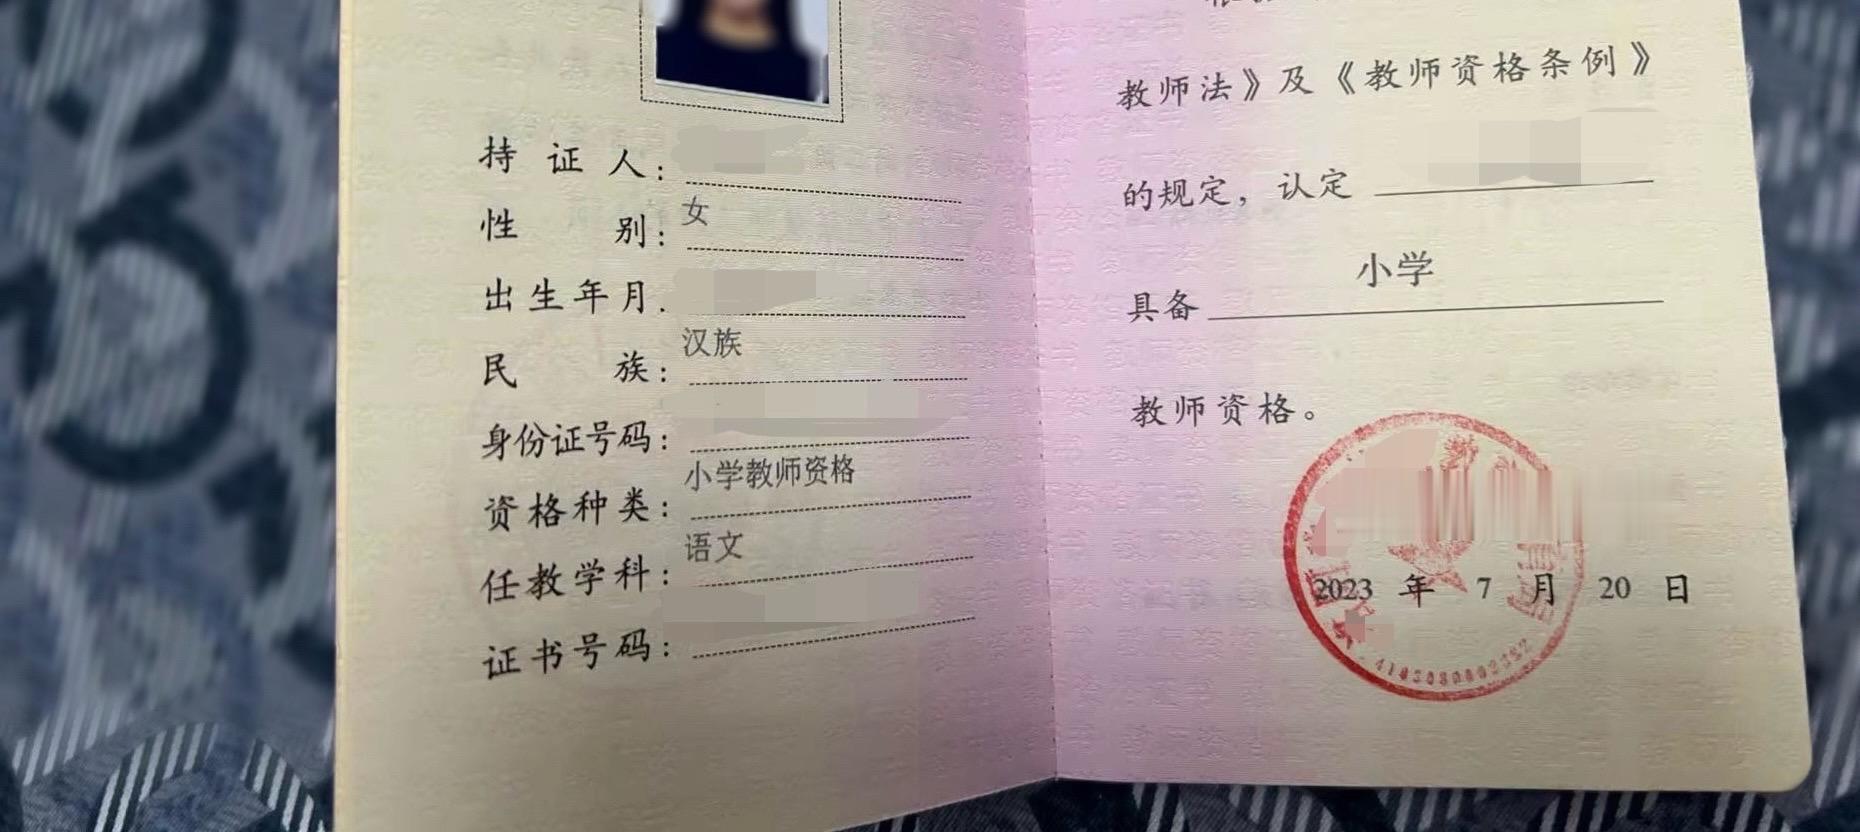 持证人：
性别：女
出生年月.
民族：汉族
身份证号码：
资格种类：小学教师资格
任教学科：语文
证书号码：
教师法》及《教师资格条例》
的规定，认定
具备 小学
教师资格。
2023 年 7 月 20 日